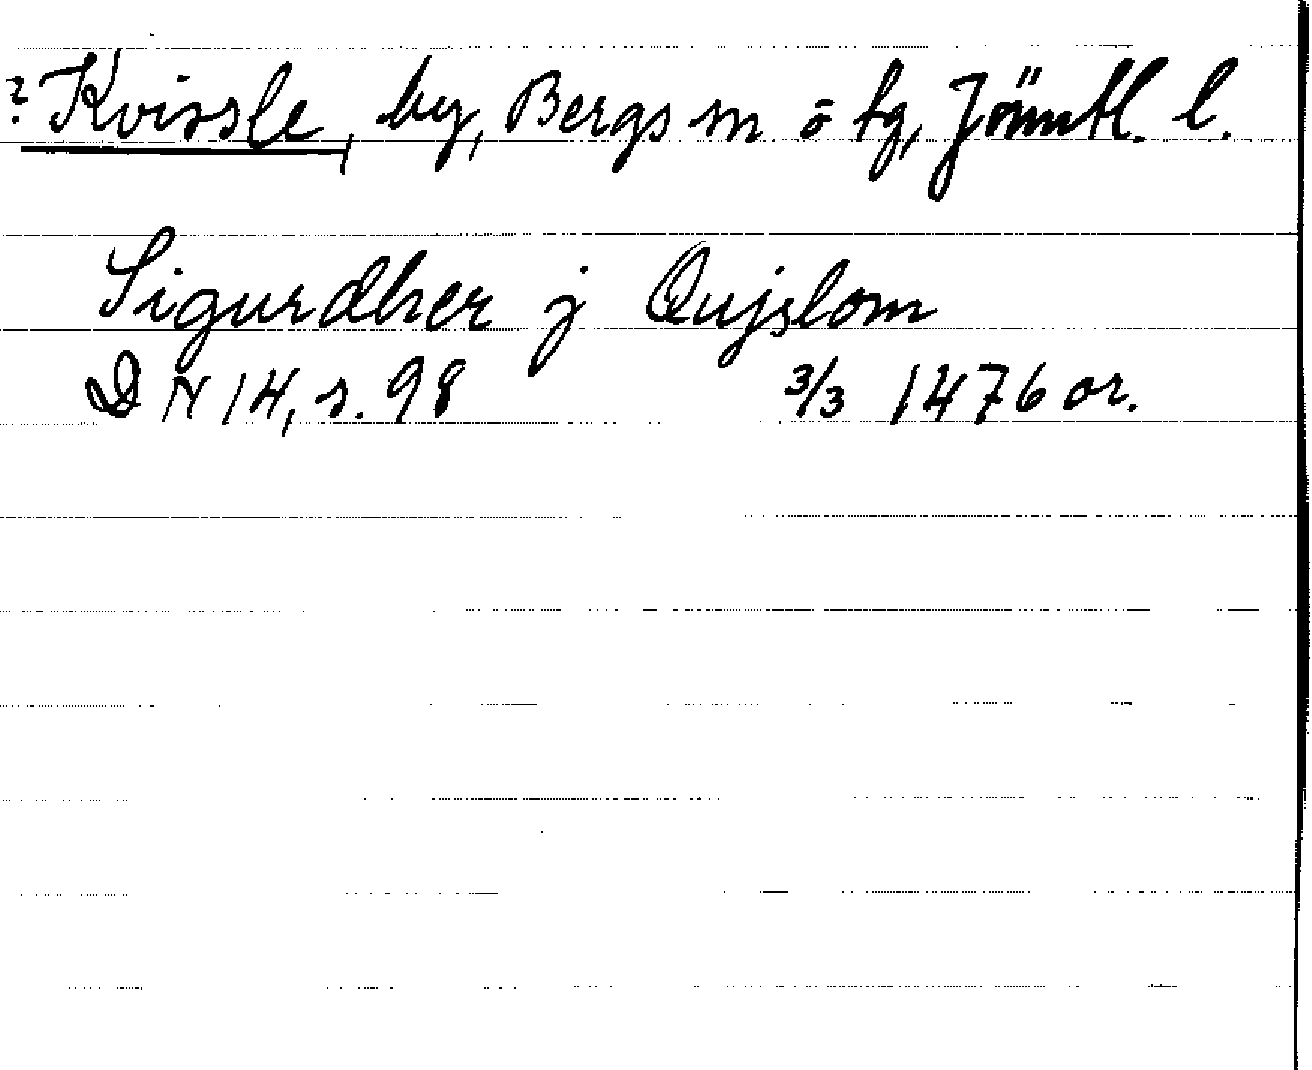 ? Kvissle, by, Bergs sn o tg, Jämtl. l.
Sigurdher j Qujslom
DN 14, s. 98 3/3 1476 or.